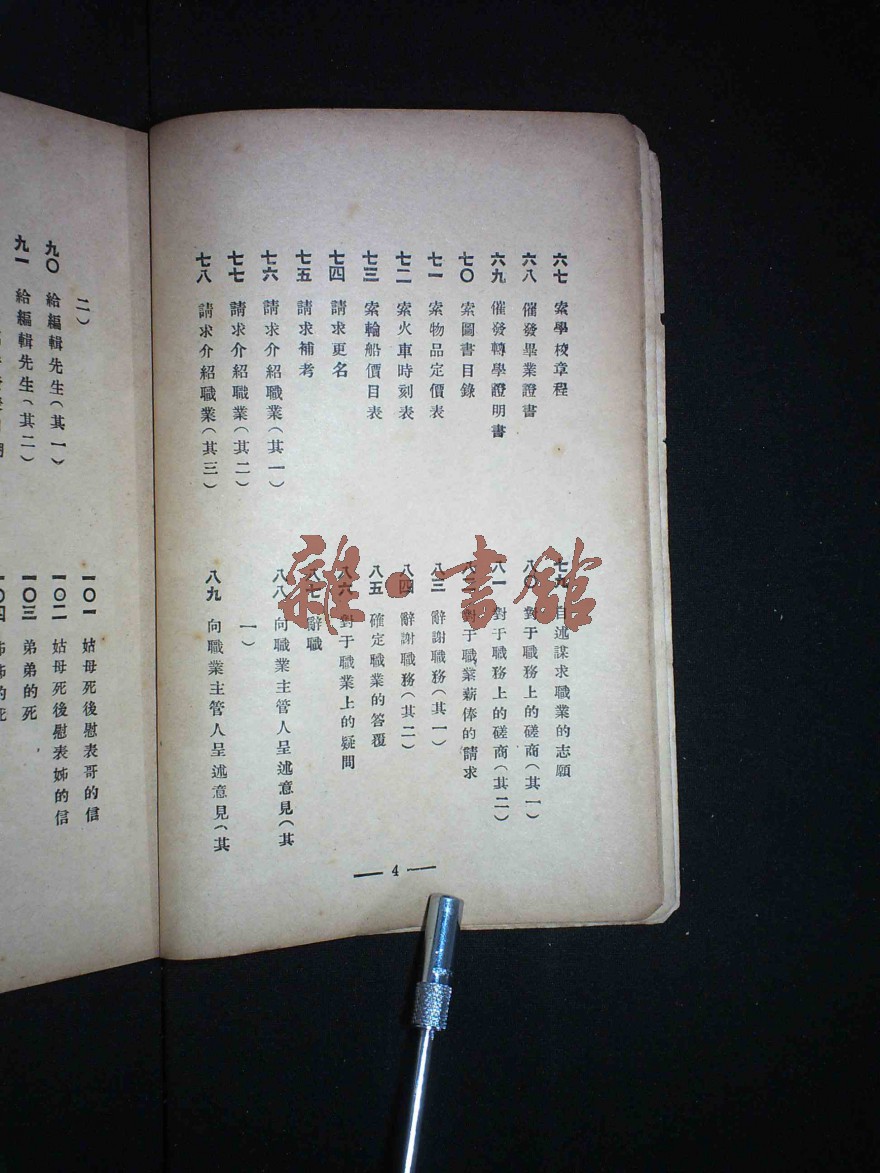 六七 索學校章程
六八 催發畢業證書
六九 催發轉學證明書
七〇 索圖書目錄
七一 索物品定價表
七二 索火車時刻表
七三 索輪船價目表
七四 請求更名
七五 請求補考
七六 請求介紹職業(其一)
七七 請求介紹職業(其二)
七八 請求介紹職業(其三)
七九 自述謀求職業的志願
八〇 對于職務上的磋商(其一)
八一 對于職務上的磋商(其二)
八二 對于職業薪俸的請求
八三 辭謝職務(其一)
八四 辭謝職務(其二)
八五 確定職業的答覆
八六 對于職業上的疑問
八七 辭職
八八 向職業主管人呈述意見(其
一)
八九 向職業主管人呈述意見(其
— 4 —
二)
九〇 給編輯先生(其一)
九一 給編輯先生(其二)
一〇一 姑母死後慰表哥的信
一〇二 姑母死後慰表姊的信
一〇三 弟弟的死
一〇四 姊姊的死
雜·書館